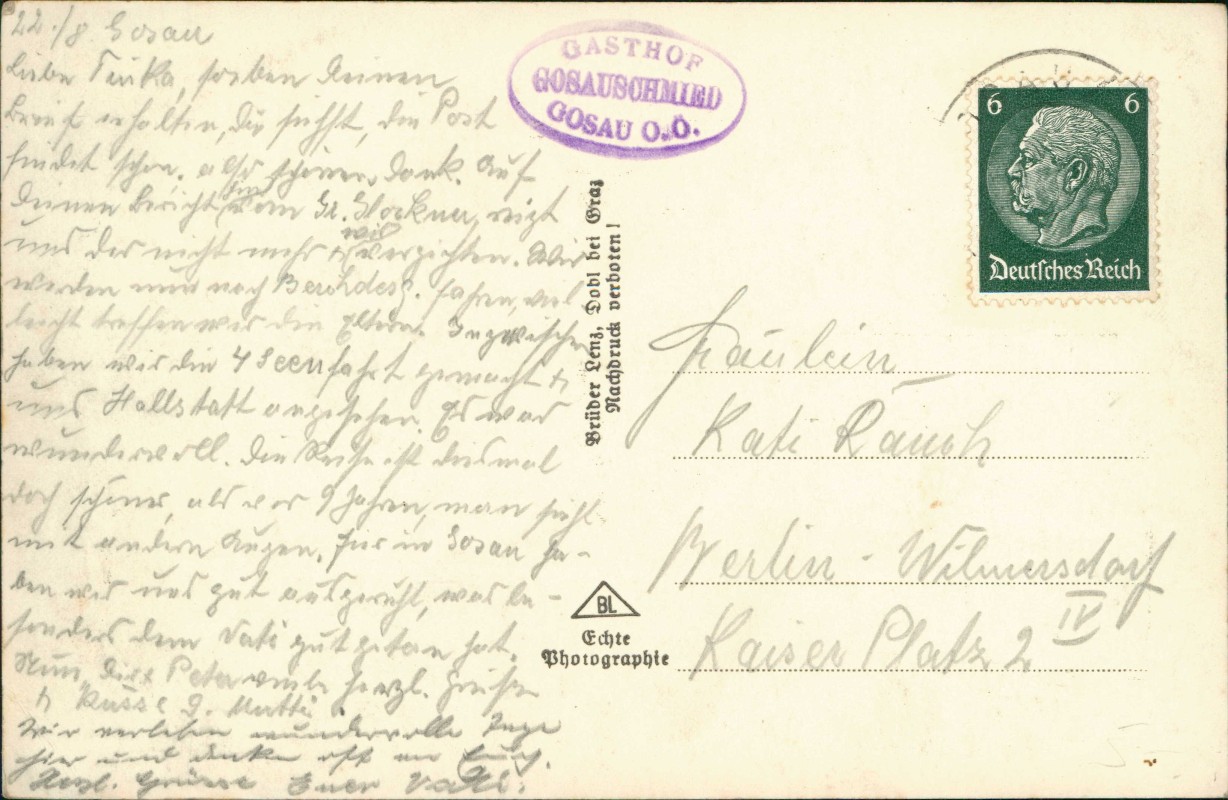 22./8 Gosau
Liebe soeben Deinen
Brief erhalten, Du siehst, die Post
findet schon. also schönen Dank. Auf
Deinen Bericht vom Gr. Glockner, reizt
uns das nicht mehr & wir verzichten. Wir
werden nun nach Berchdesg. fahren, viel
leicht treffen wir die Eltern. Inzwischen
haben wir die 4 Seenfahrt gemacht &
uns Hallstatt angesehen. Es war
wundervoll. Die Reise ist diesmal
doch schöner, als vor 9 Jahren, man sieht
mit andern Augen. Hier in Gosau ha-
ben wir uns gut ausgeruht, was be-
sonders dem Vati gut getan hat.
Nun, Dir & Peter viele herzl. Grüße
& Küsse D. Mutti.
Wir verleben wundervolle Tage
hier und denken oft an Euch.
Herzl. Grüsse Euer Vati.
GASTHOF
GOSAUSCHMIED
GOSAU O.Ö.
Brüder Lenz, Dobl bei Graz
Nachdruck verboten!
BL
Echte
Photographie
6 6
Deutsches Reich
Fräulein
Kati Rauch
Berlin-Wilmersdorf
Kaiser Platz 2 IV